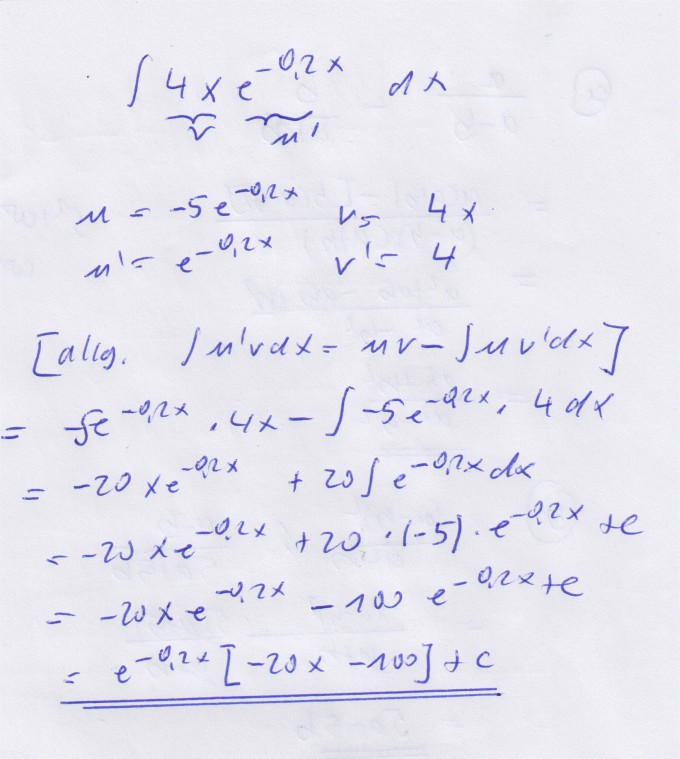 ∫ 4x e^{-0,2x} dx
v u'
u = -5e^{-0,2x} v = 4x
u' = e^{-0,2x} v' = 4
[allg. ∫u'vdx = uv - ∫uv'dx]
= -5e^{-0,2x} · 4x - ∫ -5e^{-0,2x} · 4 dx
= -20 x e^{-0,2x} + 20 ∫ e^{-0,2x} dx
= -20 x e^{-0,2x} + 20 · (-5) · e^{-0,2x} + c
= -20 x e^{-0,2x} - 100 e^{-0,2x} + c
= e^{-0,2x} [-20x - 100] + c